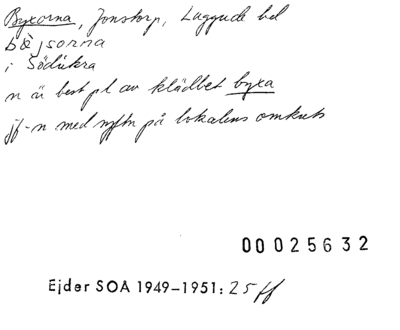 Byxorna, Jonstorp, Luggude hd
bò̤jsorna
i Södåkra
n är best pl av klädbet byxa
jf -n med syftn på lokalens omkrets
00025632
Ejder SOA 1949-1951: 25 ff